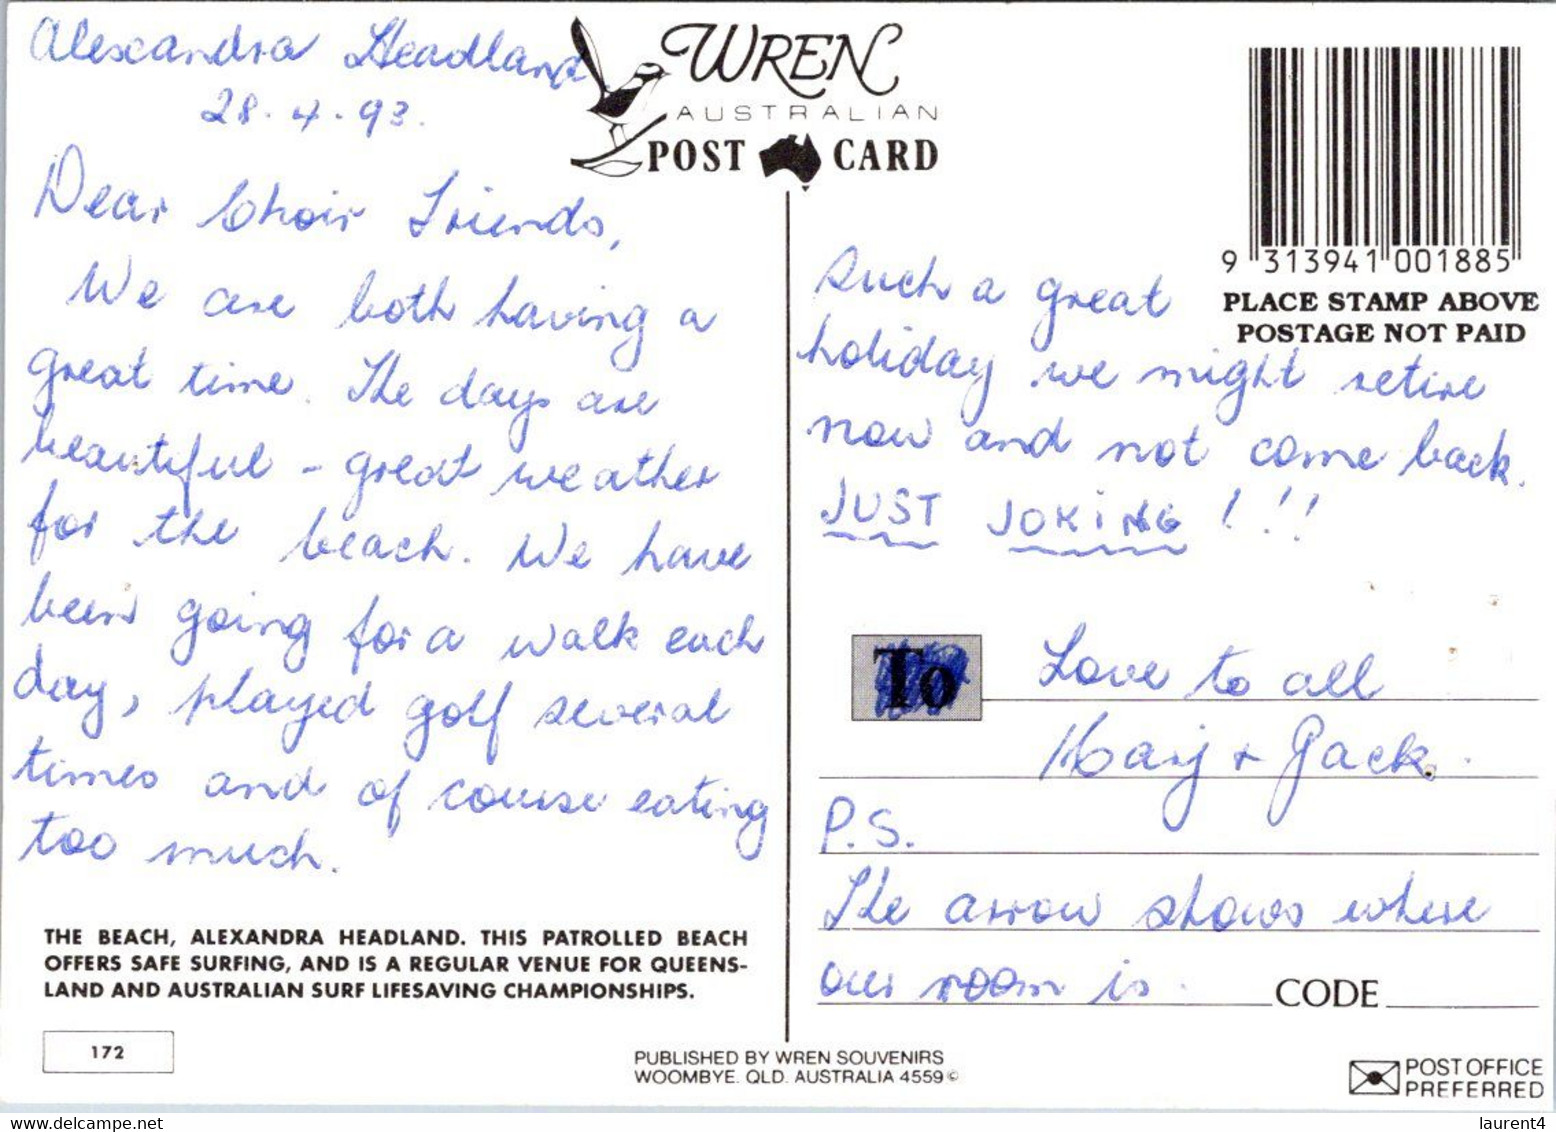 Alexandra Headland
28.4.93.
Dear Choir Friends,
We are both having a
great time. The days are
beautiful - great weather
for the beach. We have
been going for a walk each
day, played golf several
times and of course eating
too much.
THE BEACH, ALEXANDRA HEADLAND. THIS PATROLLED BEACH
OFFERS SAFE SURFING, AND IS A REGULAR VENUE FOR QUEENS-
LAND AND AUSTRALIAN SURF LIFESAVING CHAMPIONSHIPS.
172
WREN
AUSTRALIAN
POST CARD
9 313941 001885
PLACE STAMP ABOVE
POSTAGE NOT PAID
Such a great
holiday we might retire
now and not come back.
JUST JOKING !!!
To
Love to all
Marj + Jack.
P.S.
The arrow shows where
our room is.
CODE
PUBLISHED BY WREN SOUVENIRS
WOOMBYE. QLD. AUSTRALIA 4559 ©
POST OFFICE
PREFERRED
delcampe.net
laurent4